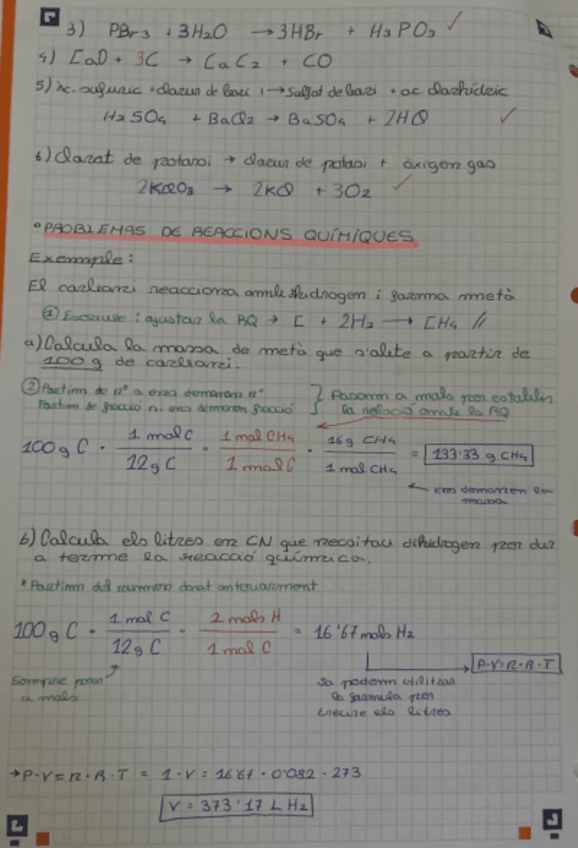 3) PBr3 + 3H2O → 3HBr + H3PO3 ✓
4) CaO + 3C → CaC2 + CO
5) Àc. sulfuric + clorur de bari → Sulfat de bari + ac clorhídric
H2SO4 + BaCl2 → BaSO4 + 2HCl ✓
6) Clorat de potassi → clorur de potassi + oxigen gas
2KClO3 → 2KCl + 3O2 ✓
• PROBLEMAS DE REACCIONS QUÍMIQUES
Exemple:
El carboni reacciona amb hidrogen i forma metà
① Escriure i ajustar la RQ → C + 2H2 → CH4 //
a) Calcula la massa de metà que s'obté a partir de
100 g de carboni.
② Partim de nº a ens demanen nº
Partim de ni ens demanen
Passem a mols per establir
la relació amb la RQ
100 g C · 1 mol C / 12 g C · 1 mol CH4 / 1 mol C · 16 g CH4 / 1 mol CH4 = 133'33 g CH4
← ens demanen la
massa
b) Calcula els litres en CN que necessitau dihidrogen per dur
a terme la reacció química.
* Partim del número donat anteriorment
100 g C · 1 mol C / 12 g C · 2 mols H / 1 mol C = 16'67 mols H2
Sempre passar
a mols
P·V=n·R·T
Ja podem utilitzar
la formula per
treure els litres
→ P·V=n·R·T = 1·V = 16'67 · 0'082 · 273
V = 373'17 L H2